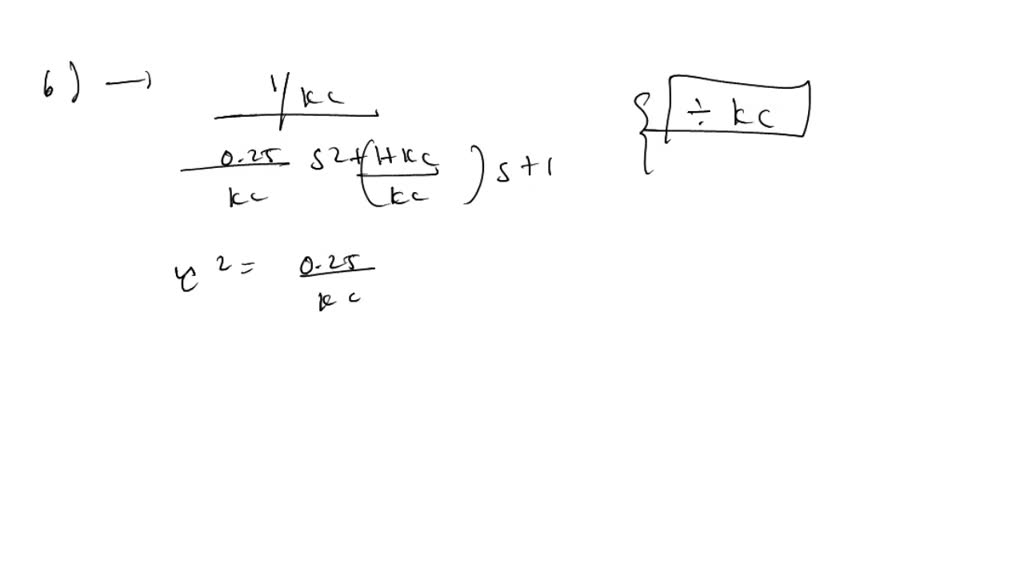 6) → 1/kc
÷ kc
0.25/kc s2+(1+kc/kc)s+1
τ2 = 0.25/kc